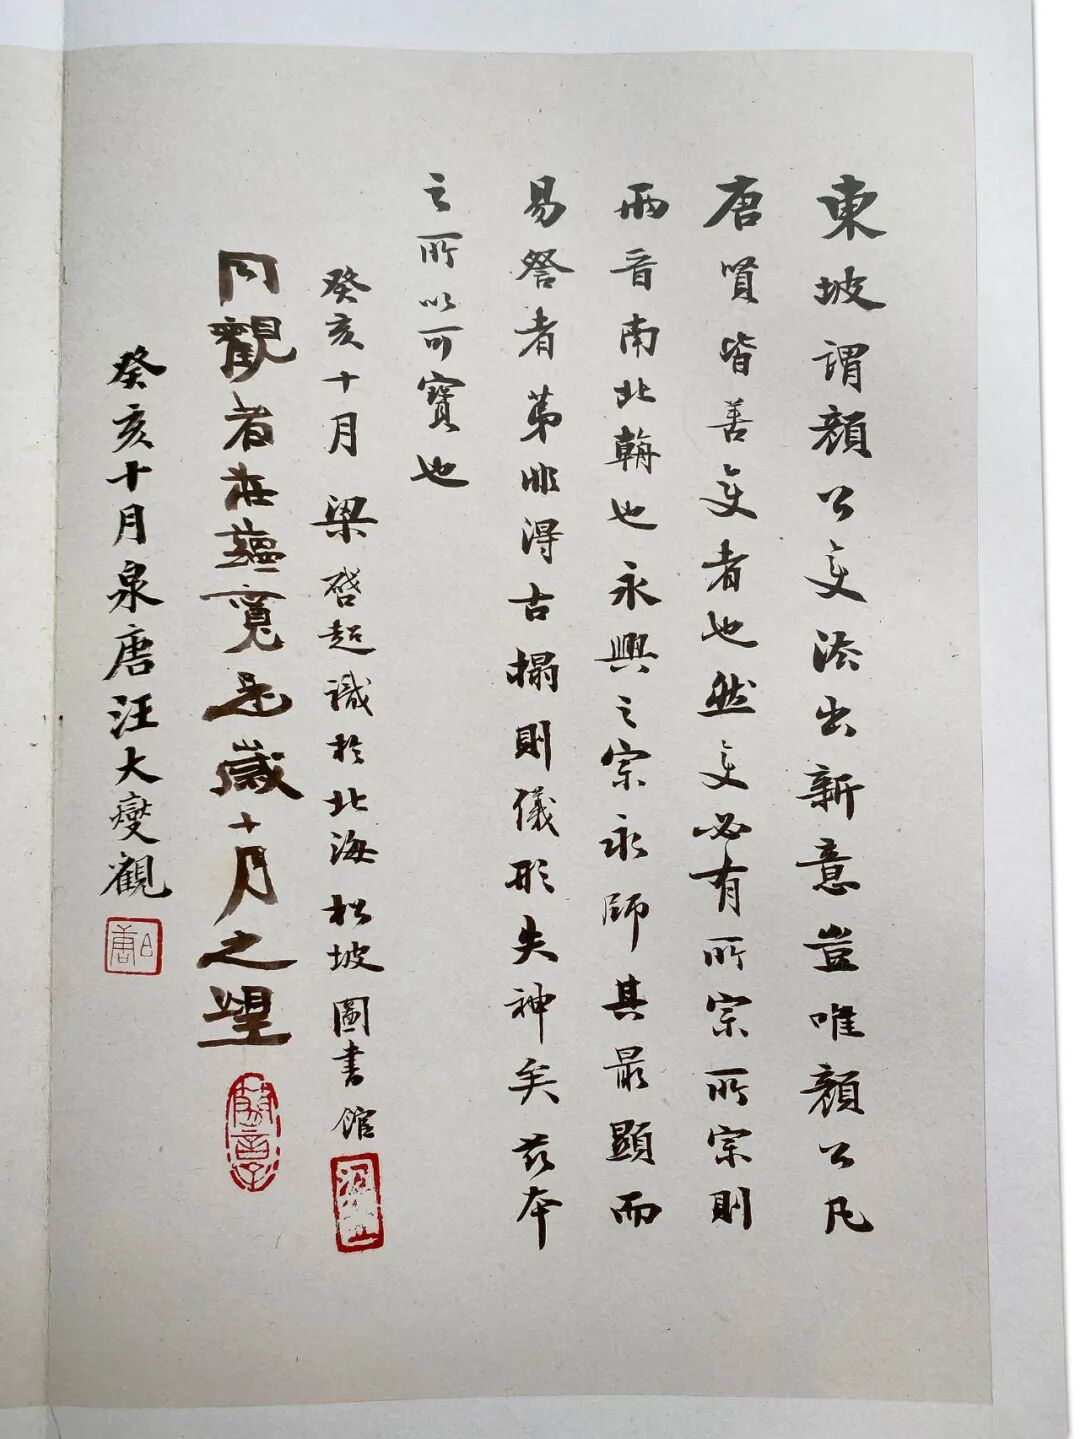 東坡謂顏公變法出新意豈唯顏公凡
唐賢皆善變者也然變必有所宗所宗則
兩晉南北翰也永興之宗永師其最顯而
易詧者第非得古搨則儀形失神矣茲本
之所以可寶也
癸亥十月 梁啓超識於北海松坡圖書館
同觀者莊蘊寬是歲十月之望
癸亥十月泉唐汪大燮觀